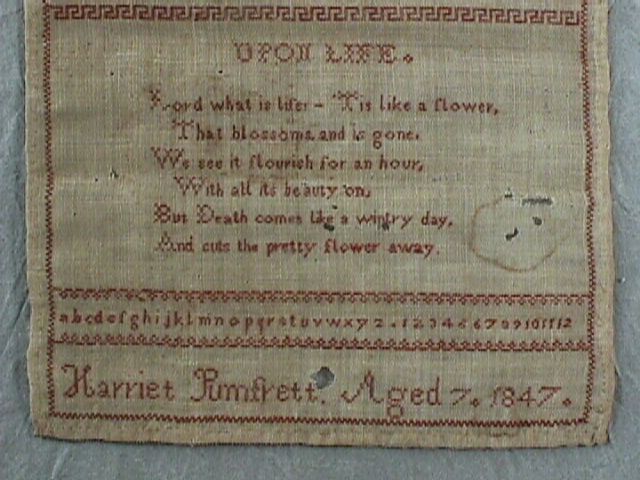 UPON LIFE.
Lord what is life: - 'Tis like a flower,
That blossoms and is gone.
We see it flourish for an hour,
With all its beauty on,
But Death comes like a wintry day,
And cuts the pretty flower away.
abcdefghijklmnopqrstuvwxyz.123456789101112
Harriet Pumfrett. Aged 7. 1847.